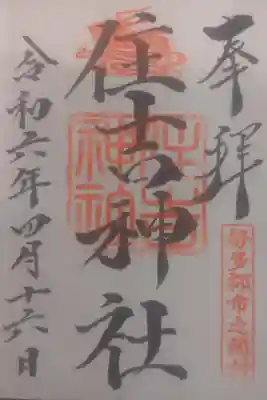 奉拝
住吉神社
令和六年四月十六日